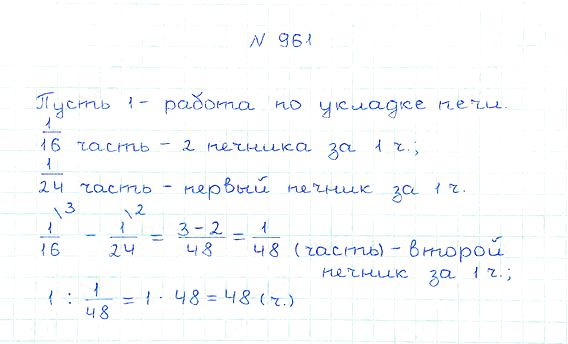 N 961
Пусть 1 - работа по укладке печи.
1/16 часть - 2 печника за 1 ч.;
1/24 часть - первый печник за 1 ч.
1/16 \3 - 1/24 \2 = 3-2/48 = 1/48 (часть) - второй
печник за 1 ч.;
1 : 1/48 = 1 · 48 = 48 (ч.)